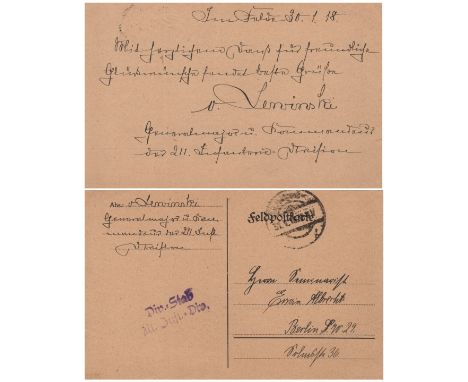 Im Felde 30.1.18.
Mit herzlichem Dank für freundliche
Glückwünsche sendet beste Grüße
v. Lewinski
Generalmajor u. Kommandeur
der 211. Infanterie-Division
Abs. v. Lewinski
Generalmajor u. Kom-
mandeur der 211. Inft.
Division
Feldpostkarte
Div.-Stab
211. Inft.-Div.
Herrn
Erwin Albrecht
Berlin 29.
Solmsstr. 36